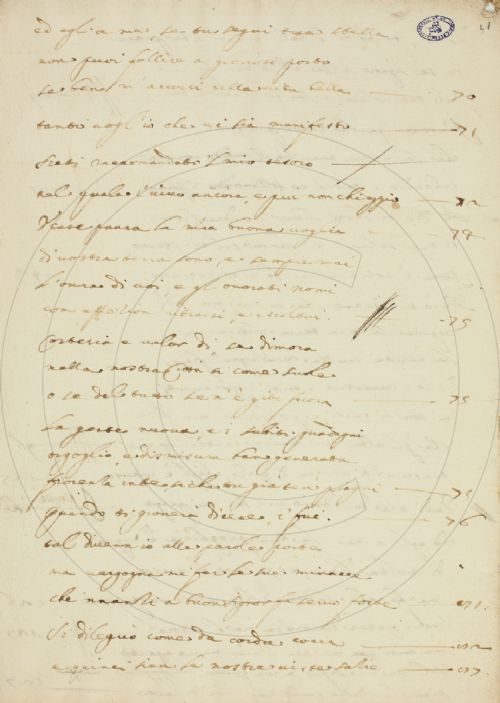 ed egli a me se tu segui tua stella
non puoi fallire a glorioso porto
se ben m'accorsi nella vita bella 70
tanto vogl'io che vi sia manifesto 71
sieti raccomandato il mio tesoro
nel quale i' vivo ancora, e piu non cheggio 72
Viene pensa la mia buona voglia 74
di vostra terra sono, e sempre mai
l'ovra di voi e gl'onorati nomi
con affezion ritrassi, e ascoltai 75
cortesia e valor di, se dimora
nella nostra Città si come suole
o se del tutto se n'è gita fuora 75
la gente nuova, e i subiti guadagni
orgoglio, e dismisura han generata
fiorenza in te si che tu già ten piagni 75
quando ti gioverà dicere, i' fui. 76
tal divenn'io alle parole porte
ma vergogna mi fer le sue minacce
che innanzi a buon signor fa servo forte 81.
Si dileguò come da corda cocca
e quinci sien le nostre viste sazie